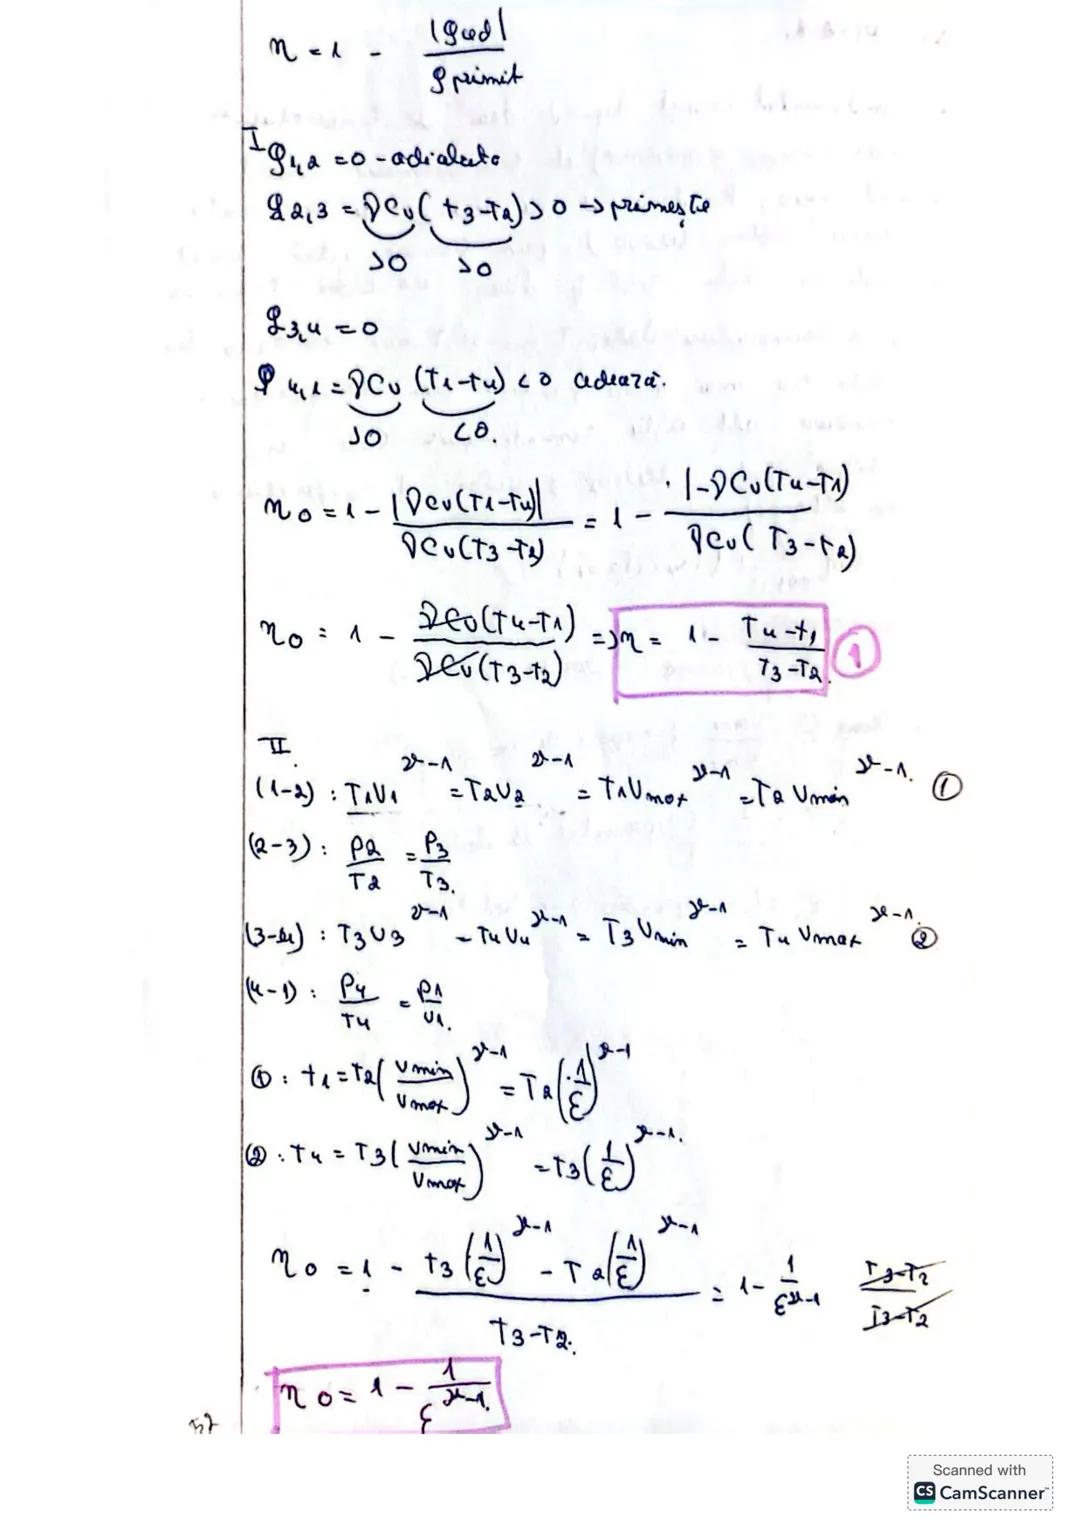 η = 1 - |Qced| / Qprimit
I Q1,2 = 0 - adiabata
Q2,3 = νCv(T3-T2) >0 → primește
>0 >0
Q3,4 = 0
Q4,1 = νCv (T1-T4) <0 cedează.
>0 <0.
η0 = 1 - |νCv(T1-T4)| / νCv(T3-T2) = 1 - |-νCv(T4-T1) / νCv(T3-T2)
η0 = 1 - νCv(T4-T1) / νCv(T3-T2) => η = 1 - T4-T1 / T3-T2 1
II.
(1-2) : T1V1^γ-1 = T2V2^γ-1 = T1Vmax^γ-1 = T2Vmin^γ-1. ①
(2-3) : P2/T2 = P3/T3.
(3-4) : T3V3^γ-1 = T4V4^γ-1 = T3Vmin^γ-1 = T4Vmax^γ-1. ②
(4-1) : P4/T4 = P1/V1.
①: T1 = T2(Vmin/Vmax)^γ-1 = T2(1/ε)^γ-1
②: T4 = T3(Vmin/Vmax)^γ-1 = T3(1/ε)^γ-1.
η0 = 1 - T3(1/ε)^γ-1 - T2(1/ε)^γ-1 / T3-T2. = 1 - 1/ε^γ-1 T3-T2 / T3-T2
η0 = 1 - 1/ε^γ-1.
57
Scanned with
CS CamScanner